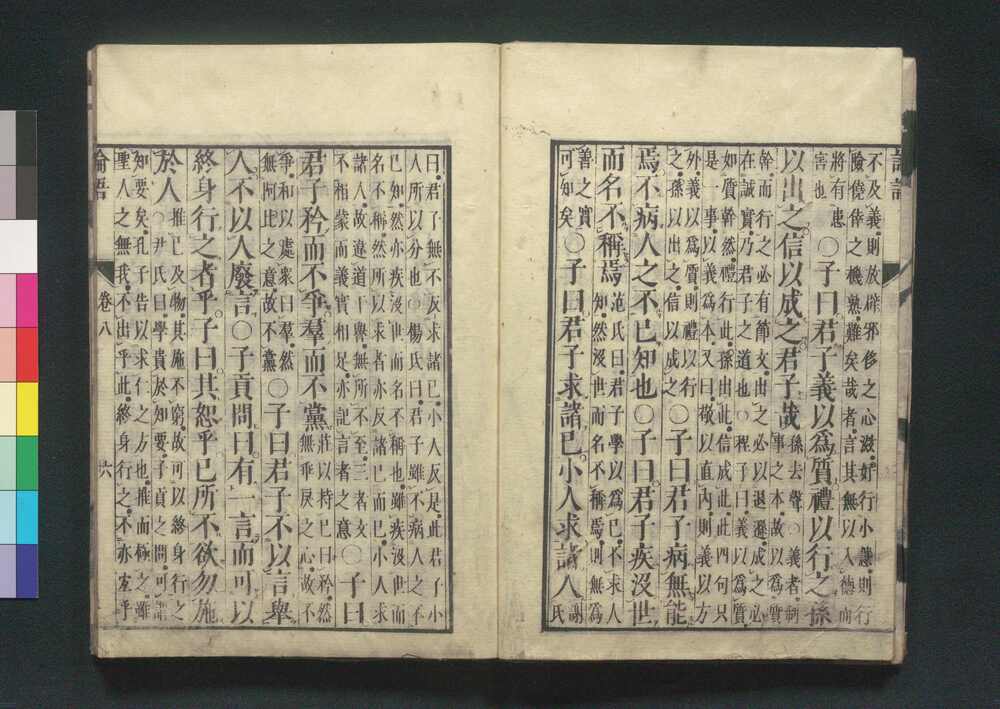 論語
不及義則放辟邪侈之心滋好行小慧則行
險僥倖之機熟難矣哉者言其無以入德而
將有患
害也
○子曰君子義以爲質禮以行之孫
以出之信以成之君子哉
孫去聲○義者制
事之本故以爲質
幹而行之必有節文出之必以退遜成之必
在誠實乃君子之道也○程子曰義以爲質
如質幹然禮行此孫出此信成此此四句只
是一事以義爲本又曰敬以直內則義以方
外義以爲質則禮以行
之孫以出之信以成之
○子曰君子病無能
焉不病人之不己知也○子曰君子疾沒世
而名不稱焉
范氏曰君子學以爲己不求人
知然沒世而名不稱焉則無爲
善之實
可知矣
○子曰君子求諸己小人求諸人
謝
氏
曰君子無不反求諸己小人反是此君子小
人所以分也○楊氏曰君子雖不病人之不
己知然亦疾沒世而名不稱也雖疾沒世而
名不稱然所以求者亦反諸己而已小人求
諸人故違道干譽無所不至三者文
不相蒙而義實相足亦記言者之意
○子曰
君子矜而不爭羣而不黨
莊以持己曰矜然
無乖戾之心故不
爭和以處衆曰羣然
無阿比之意故不黨
○子曰君子不以言舉
人不以人廢言○子貢問曰有一言而可以
終身行之者乎子曰其恕乎己所不欲勿施
於人
推己及物其施不窮故可以終身行之
○尹氏曰學貴於知要子貢之問可謂
知要矣孔子告以求仁之方也推而極之雖
聖人之無我不出乎此終身行之不亦宜乎
論語 卷八 六